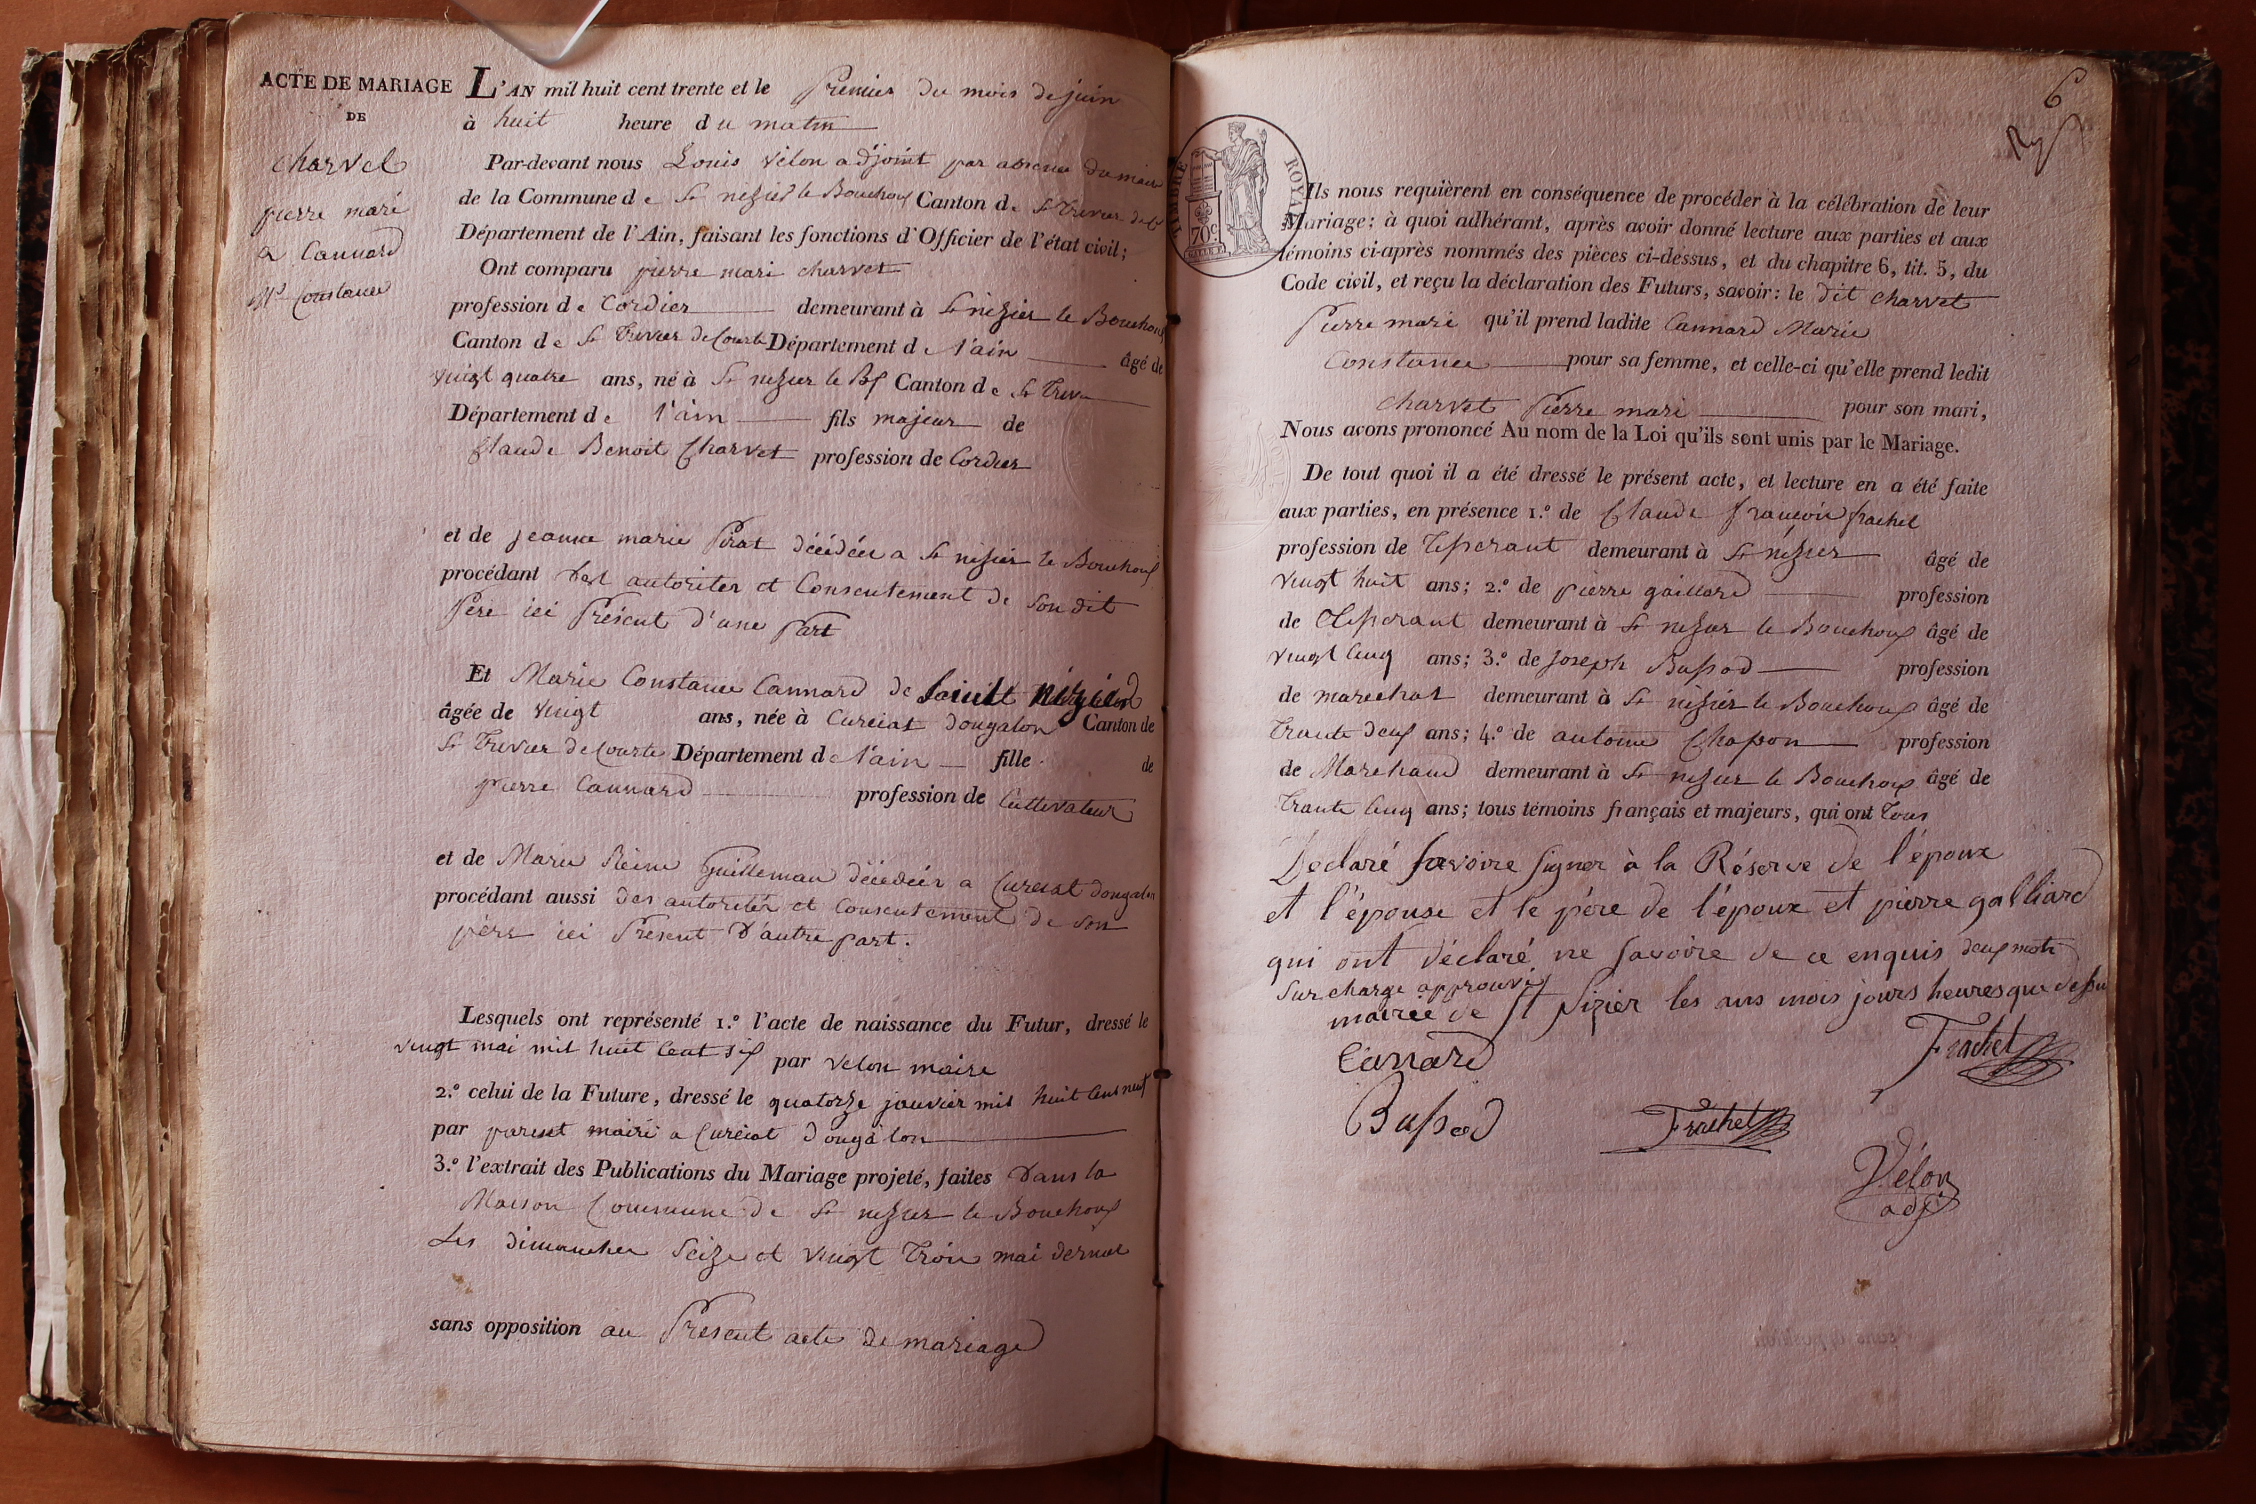 ACTE DE MARIAGE
DE
charvet
pierre mari
a Cannard
Mie Constance
L'AN mil huit cent trente et le Premier du mois de juin
à huit heure du matin
Par-devant nous Louis velon adjoint par absence du maire
de la Commune de St nizier le Bouchoux Canton de St Trivier de Cte
Département de l'Ain, faisant les fonctions d'Officier de l'état civil;
Ont comparu pierre mari charvet
profession de Cordier demeurant à St nizier le Bouchoux
Canton de St Trivier de Courte Département de l'ain âgé de
vingt quatre ans, né à St nizier le Bx Canton de St Trivi
Département de l'ain fils majeur de
Claude Benoit Charvet profession de Cordier
et de jeanne marie Pirat décédée a St nizier le Bouchoux
procédant des autorites et Consentement de son dit
Pere ici Présent d'une Part
Et Marie Constance Cannard de Saint nizier
âgée de vingt ans, née à Curciat dongalon Canton de
St Trivier de Courte Département de l'ain fille de
pierre Cannard profession de Cultivateur
et de Marie Reine Guilleman décédée a Curciat dongalon
procédant aussi des autorités et consentement de son
père ici Présent d'autre part.
Lesquels ont représenté 1.º l'acte de naissance du Futur, dressé le
vingt mai mil huit Cent six par velon maire
2.º celui de la Future, dressé le quatorze janvier mil huit Cent neuf
par parent mairé a Curciat dongalon
3.º l'extrait des Publications du Mariage projeté, faites dans la
Maison Commune de St nizier le Bouchoux
Les dimanches Seize et vingt Trois mai dernier
sans opposition au Présent acte de mariage
6
TIMBRE ROYAL
70 c.
Ils nous requièrent en conséquence de procéder à la célébration de leur
Mariage: à quoi adhérant, après avoir donné lecture aux parties et aux
témoins ci-après nommés des pièces ci-dessus, et du chapitre 6, tit. 5, du
Code civil, et reçu la déclaration des Futurs, savoir: le dit charvet
Pierre mari qu'il prend ladite Cannard Marie
Constance pour sa femme, et celle-ci qu'elle prend ledit
Charvet Pierre mari pour son mari,
Nous avons prononcé Au nom de la Loi qu'ils sont unis par le Mariage.
De tout quoi il a été dressé le présent acte, et lecture en a été faite
aux parties, en présence 1.º de Claude françois frachet
profession de Tisserant demeurant à St nizier âgé de
vingt huit ans; 2.º de pierre gaillard profession
de Tisserant demeurant à St nizier le Bouchoux âgé de
vingt Cinq ans; 3.º de joseph Bussod profession
de marechal demeurant à St nizier le Bouchoux âgé de
Trante deux ans; 4.º de antoine Chapon profession
de Marchand demeurant à St nizier le Bouchoux âgé de
Trante Cinq ans; tous témoins français et majeurs, qui ont Tous
Déclaré savoire signer à la Réserve de l'époux
et l'épouse et le père de l'époux et pierre galliard
qui ont déclaré ne savoire de ce enquis deux mots
Surcharge approuvé
mairee de St Nizier les ans mois jours heures que dessu
Canard
Frachet
Bussod
Frachet
Vélon
adj